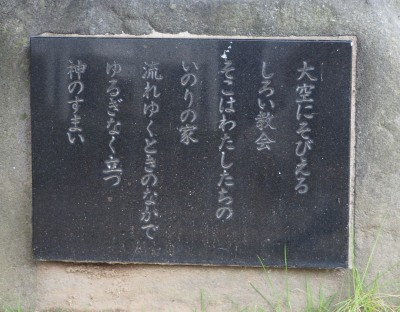 大空にそびえる
しろい教会
そこはわたしたちの
いのりの家
流れゆくときのなかで
ゆるぎなく立つ
神のすまい